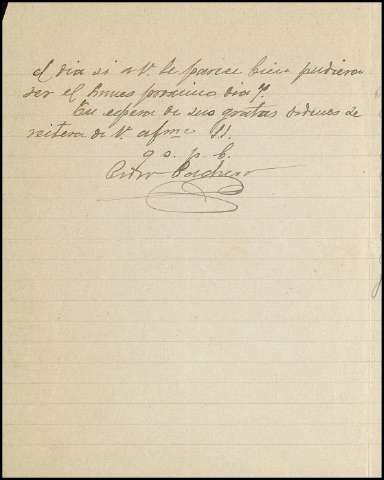 el dia si a V. le parece bien pudiera
ser el lunes proximo dia 7.
En espera de sus gratas ordenes se
reitera de V. afmo SS.
q. s. p. b.
Pedro